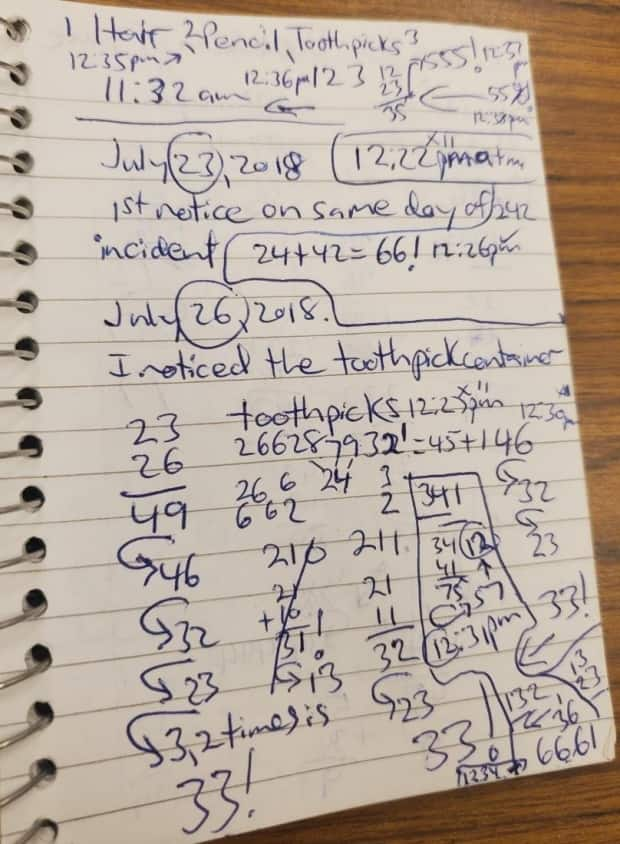 1 Hair 2 Pencil, Toothpicks 3
12:35pm 12:36pm 123 12 23 35 555! 12:37
11:32 am 55% 12:38pm
July 23, 2018 12:22pm
1st notice on same day of 242
incident 24+42=66! 12:26pm
July 26, 2018.
I noticed the toothpick container
23 toothpicks 12:23pm 12:30
26 =45+146
49 26 6 24 3 341 32
662 2
46 210 211. 34 12 23
21 21 41 75 57
32 +10 11 12:31pm 33!
31! 32
23 13 23 13 23
3, 2 times is 33 132 36
33! 1234 66.61